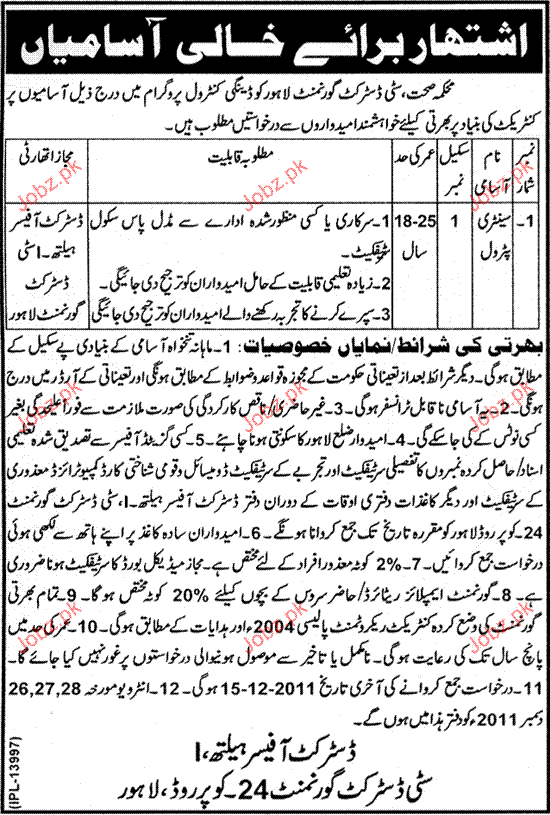 اشتہار برائے خالی آسامیاں
محکمہ صحت، سٹی ڈسٹرکٹ گورنمنٹ لاہور کو ڈینگی کنٹرول پروگرام میں درج ذیل آسامیوں پر
کنٹریکٹ کی بنیاد پر بھرتی کیلئے خواہشمند امیدواروں سے درخواستیں مطلوب ہیں۔
نمبر شمار | نام آسامی | سکیل نمبر | عمر کی حد | مطلوبہ قابلیت | مجاز اتھارٹی
1۔ | سینٹری پٹرول | 1 | 18-25 سال | 1۔ سرکاری یا کسی منظور شدہ ادارے سے مڈل پاس سکول | ڈسٹرکٹ آفیسر
سرٹیفکیٹ۔ | ہیلتھ۔I سٹی
2۔ زیادہ تعلیمی قابلیت کے حامل امیدواران کو ترجیح دی جائیگی۔ | ڈسٹرکٹ
3۔ سپرے کرنے کا تجربہ رکھنے والے امیدواران کو ترجیح دی جائیگی | گورنمنٹ لاہور
بھرتی کی شرائط/نمایاں خصوصیات: 1۔ ماہانہ تنخواہ آسامی کے بنیادی پے سکیل کے
مطابق ہوگی۔ دیگر شرائط بعد از تعیناتی حکومت کے مجوزہ قواعد و ضوابط کے مطابق ہونگی اور تعیناتی کے آرڈر میں درج
ہونگی۔ 2۔ یہ آسامی ناقابل ٹرانسفر ہوگی۔ 3۔ غیر حاضری/ناقص کارکردگی کی صورت ملازمت سے فوراً علیحدگی بغیر
کسی نوٹس کے کی جاسکے گی۔ 4۔ امیدوار ضلع لاہور کا سکونتی ہونا چاہئے۔ 5۔ کسی گزیٹڈ آفیسر سے تصدیق شدہ تعلیمی
اسناد/حاصل کردہ نمبروں کا تفصیلی سرٹیفکیٹ اور تجربے کے سرٹیفکیٹ ڈومیسائل و قومی شناختی کارڈ کمپیوٹرائزڈ معذوری
کے سرٹیفکیٹ اور دیگر کاغذات دفتری اوقات کے دوران دفتر ڈسٹرکٹ آفیسر ہیلتھ۔I، سٹی ڈسٹرکٹ گورنمنٹ
24۔ کوپر روڈ لاہور کو مقررہ تاریخ تک جمع کروانا ہونگے۔ 6۔ امیدواران سادہ کاغذ پر اپنے ہاتھ سے لکھی ہوئی
درخواست جمع کروائیں۔ 7۔ 2% کوٹہ معذور افراد کے لئے مختص ہے۔ مجاز میڈیکل بورڈ کا سرٹیفکیٹ ہونا ضروری
ہے۔ 8۔ گورنمنٹ ایمپلائز ریٹائرڈ/حاضر سروس کے بچوں کیلئے 20% کوٹہ مختص ہوگا۔ 9۔ تمام بھرتی
گورنمنٹ کی وضع کردہ کنٹریکٹ ریکروٹمنٹ پالیسی 2004ء اور ہدایات کے مطابق ہوگی۔ 10۔ عمر کی حد میں
پانچ سال تک کی رعایت ہوگی۔ نامکمل یا تاخیر سے موصول ہونیوالی درخواستوں پر غور نہیں کیا جائے گا۔
11۔ درخواست جمع کروانے کی آخری تاریخ 15-12-2011 ہوگی۔ 12۔ انٹرویو مورخہ 26,27,28
دسمبر 2011ء کو دفتر ہذا میں ہوں گے۔
ڈسٹرکٹ آفیسر ہیلتھ، I
سٹی ڈسٹرکٹ گورنمنٹ 24۔ کوپر روڈ، لاہور
(IPL-13997)
Jobz.pk